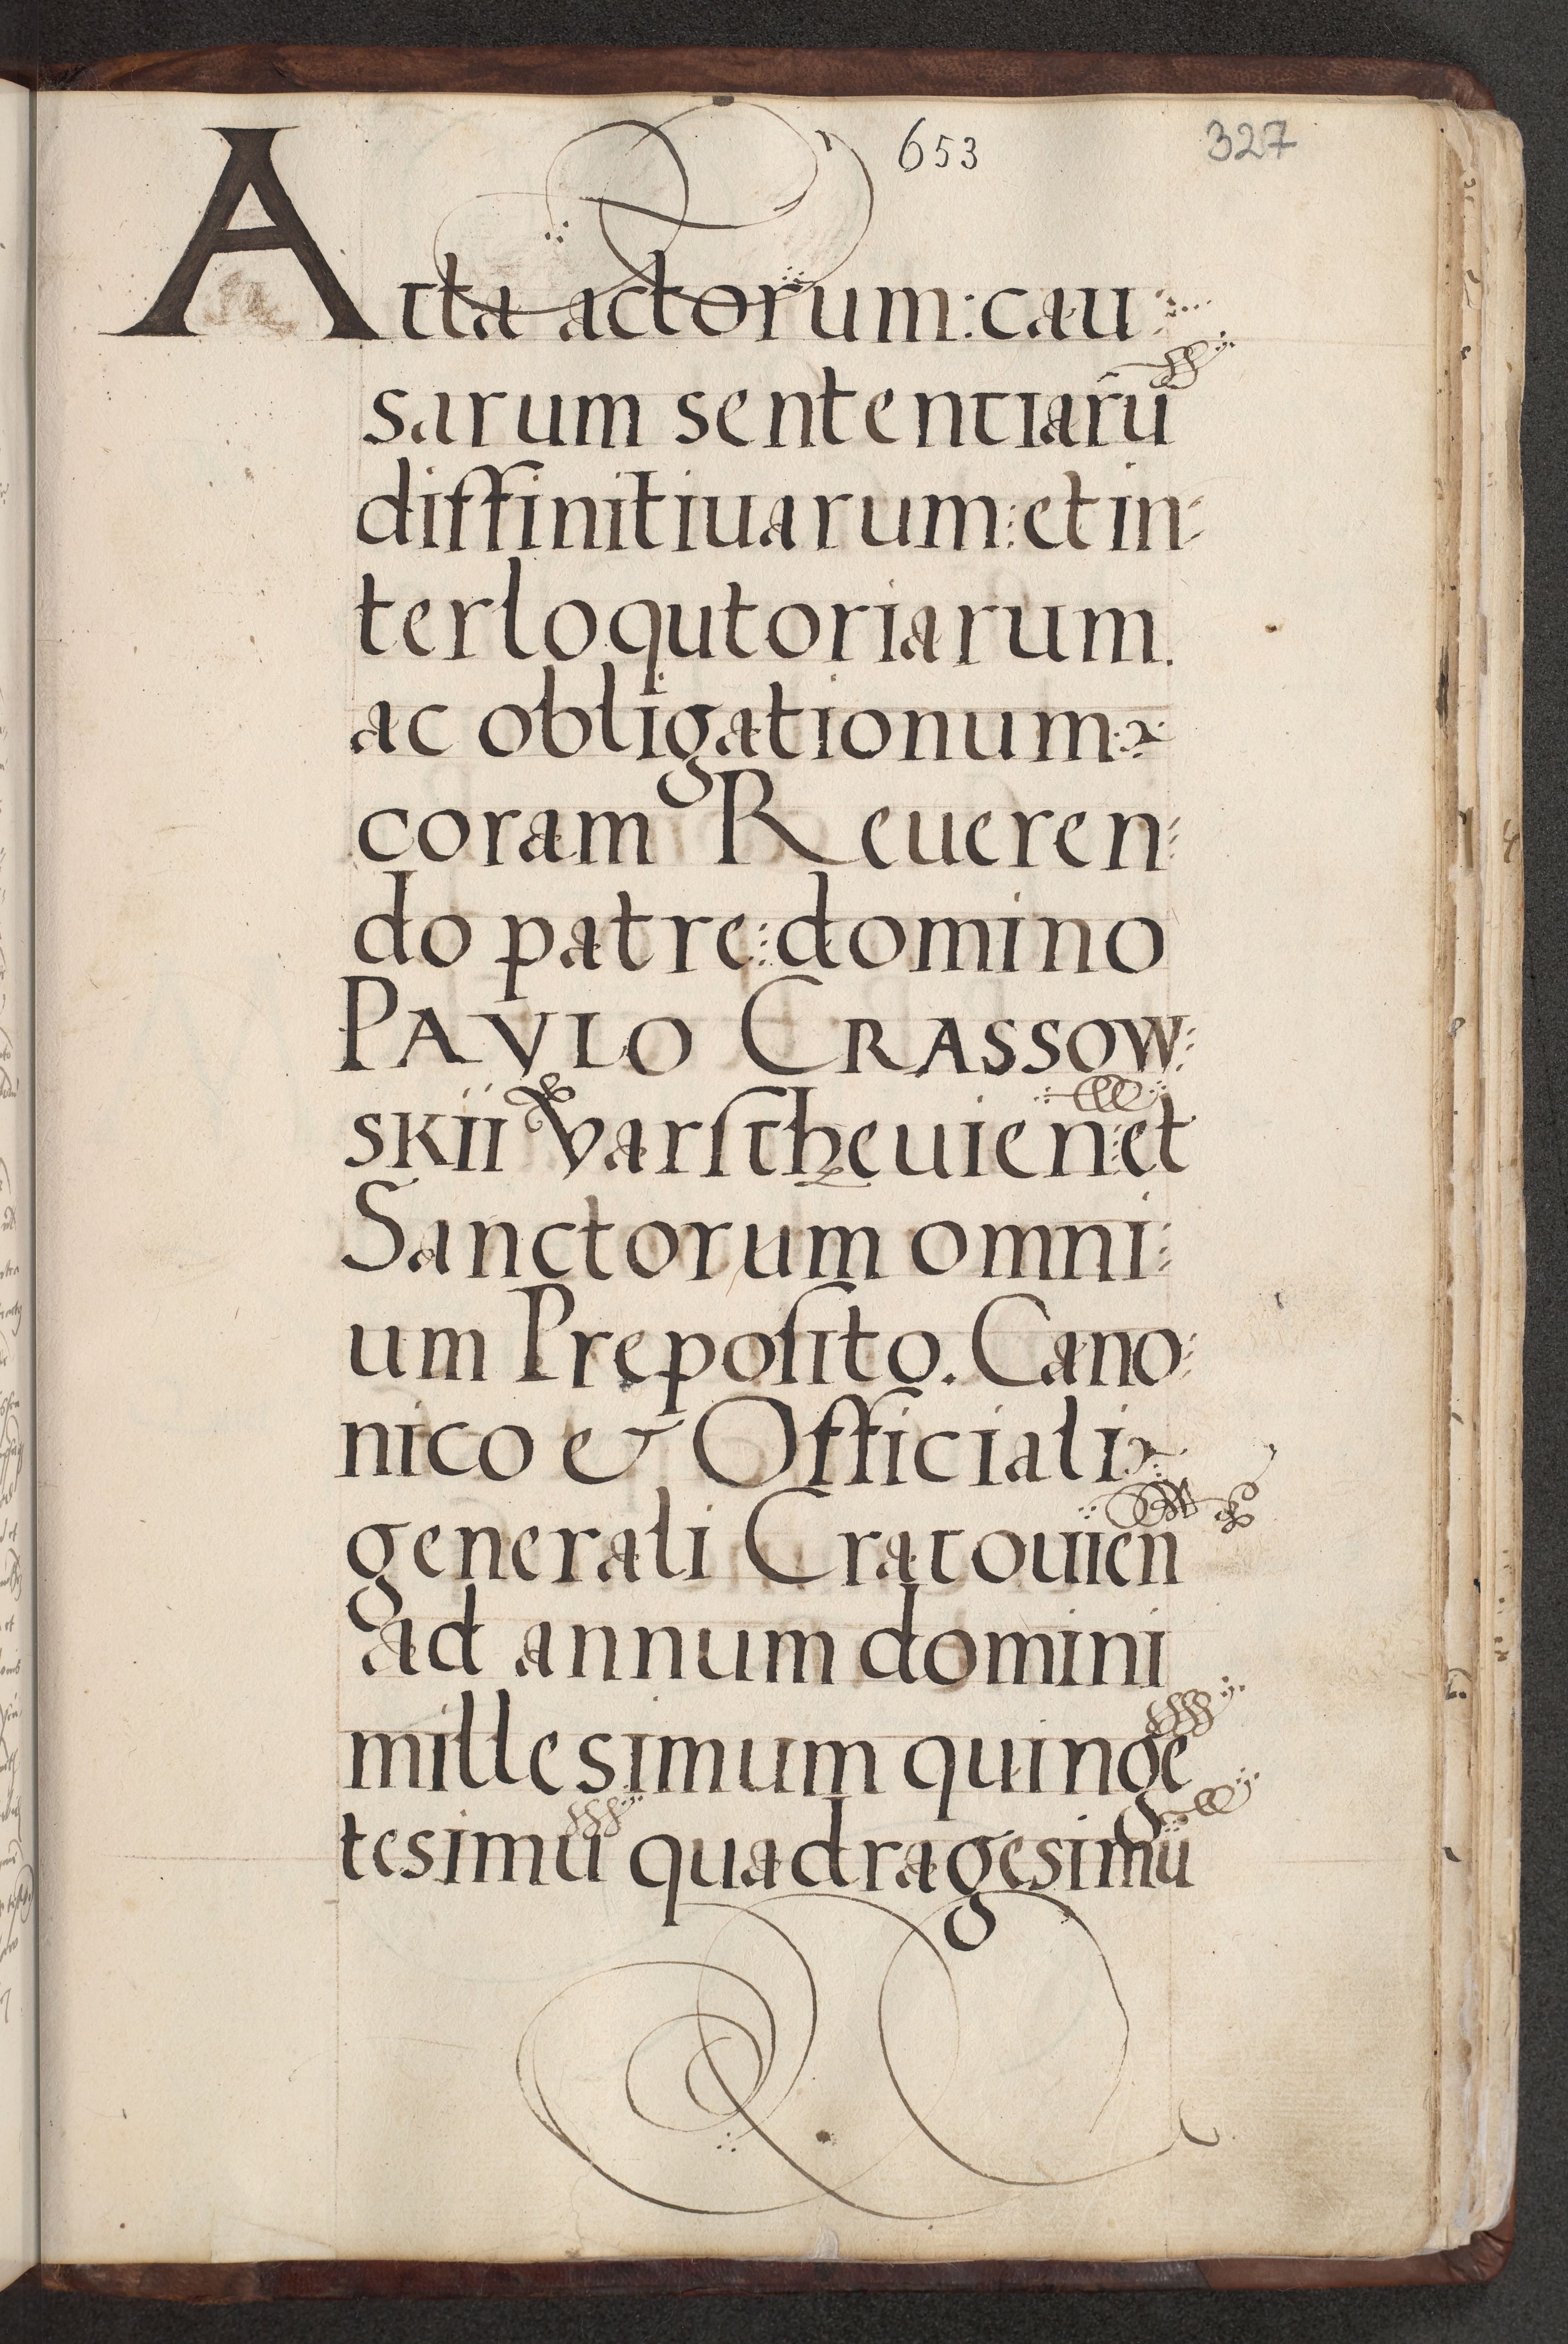 653 327
Acta actorum: cau
sarum sententiarū
diffinitiuarum: et in
terloqutoriarum.
ac obligationum
coram Reueren
do patre: domino
PAVLO CRASSOW
SKII Varſcheuien: et
Sanctorum omni
um Prępoſito. Cano
nico & Officiali
generali Cracouien
ad annum domini
millesimum quingē
tesimū quadragesimū